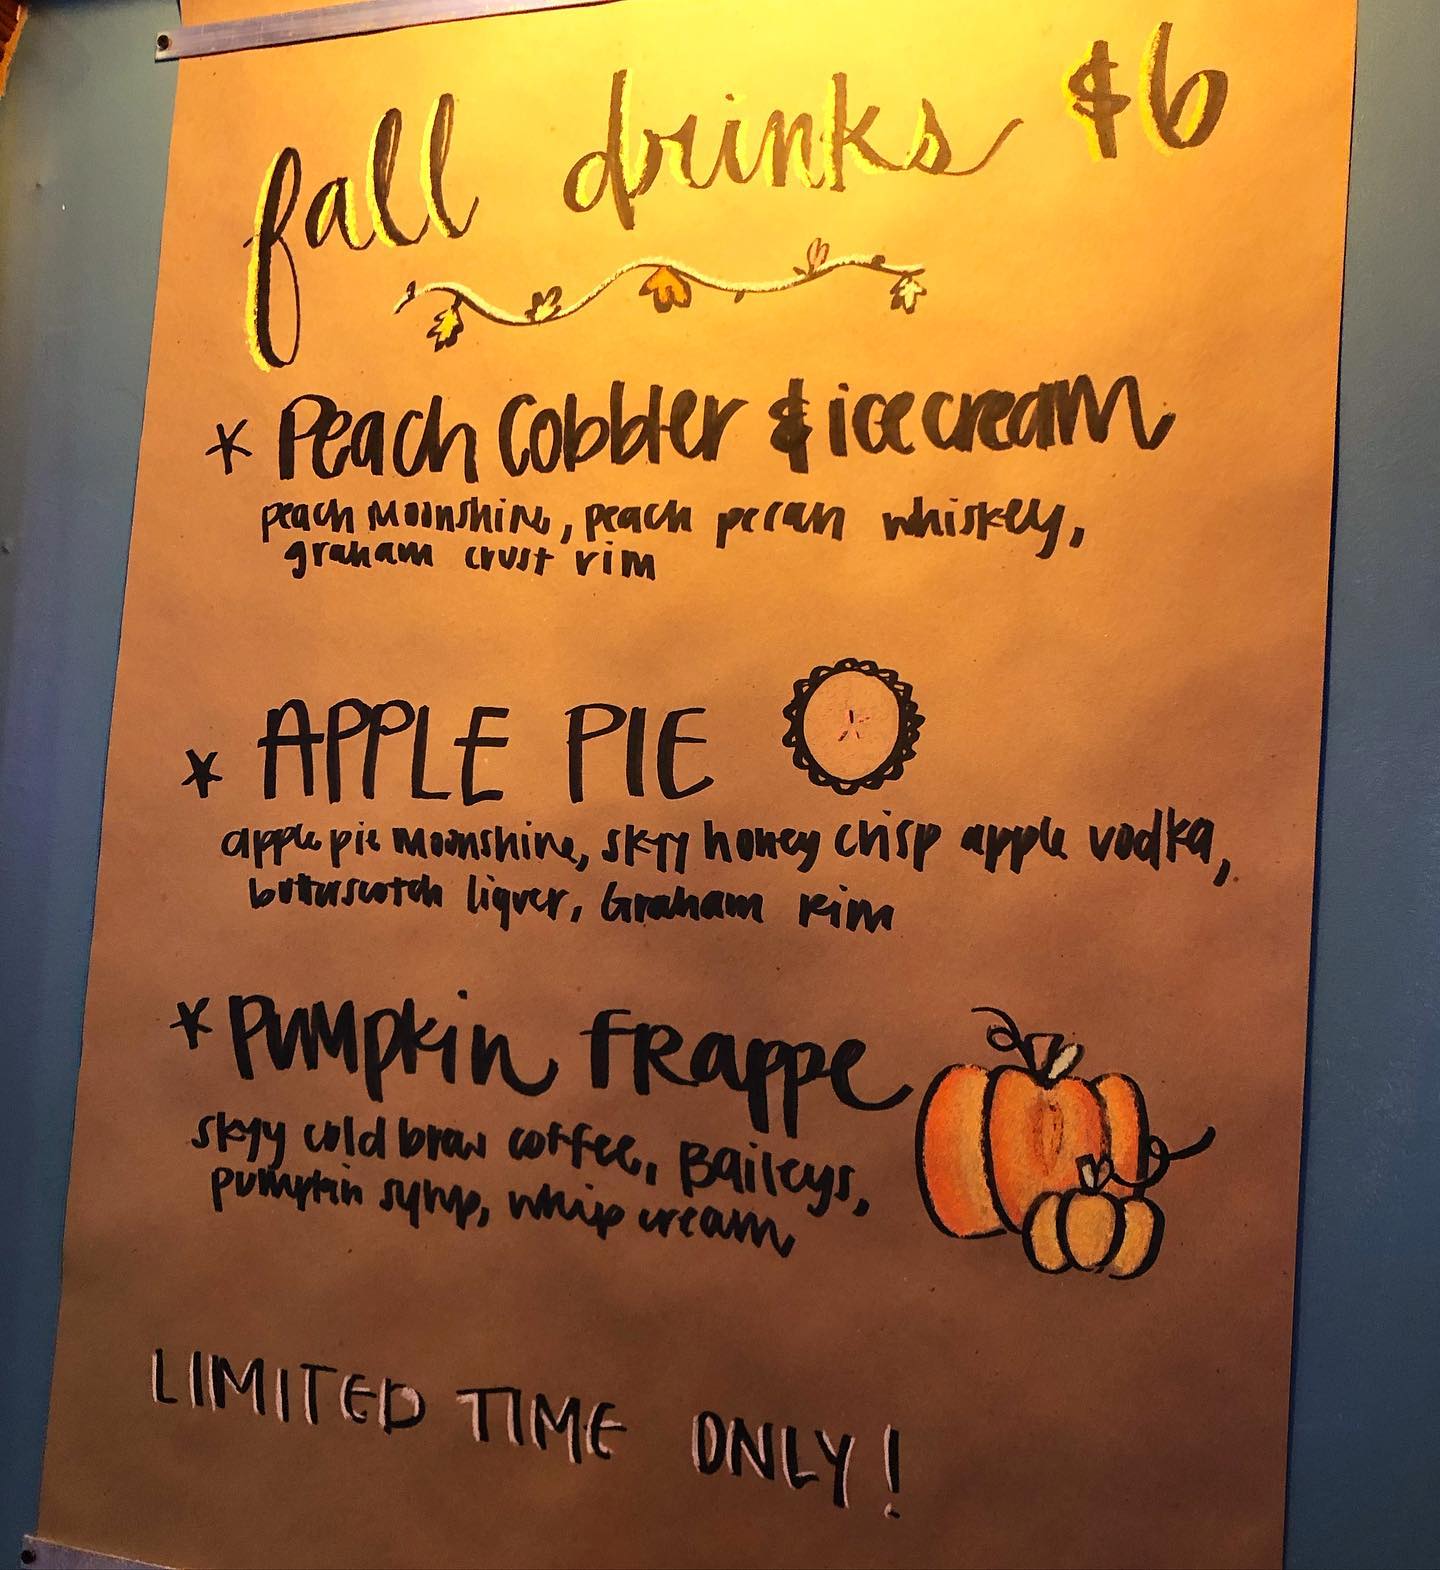 fall drinks $6
* Peach Cobbler & ice cream
peach moonshine, peach pecan whiskey,
graham crust rim
* APPLE PIE
apple pie moonshine, skyy honey crisp apple vodka,
butterscotch liquer, Graham rim
* Pumpkin FRappe
skyy cold brew coffee, Baileys,
pumpkin syrup, whip cream
LIMITED TIME ONLY!